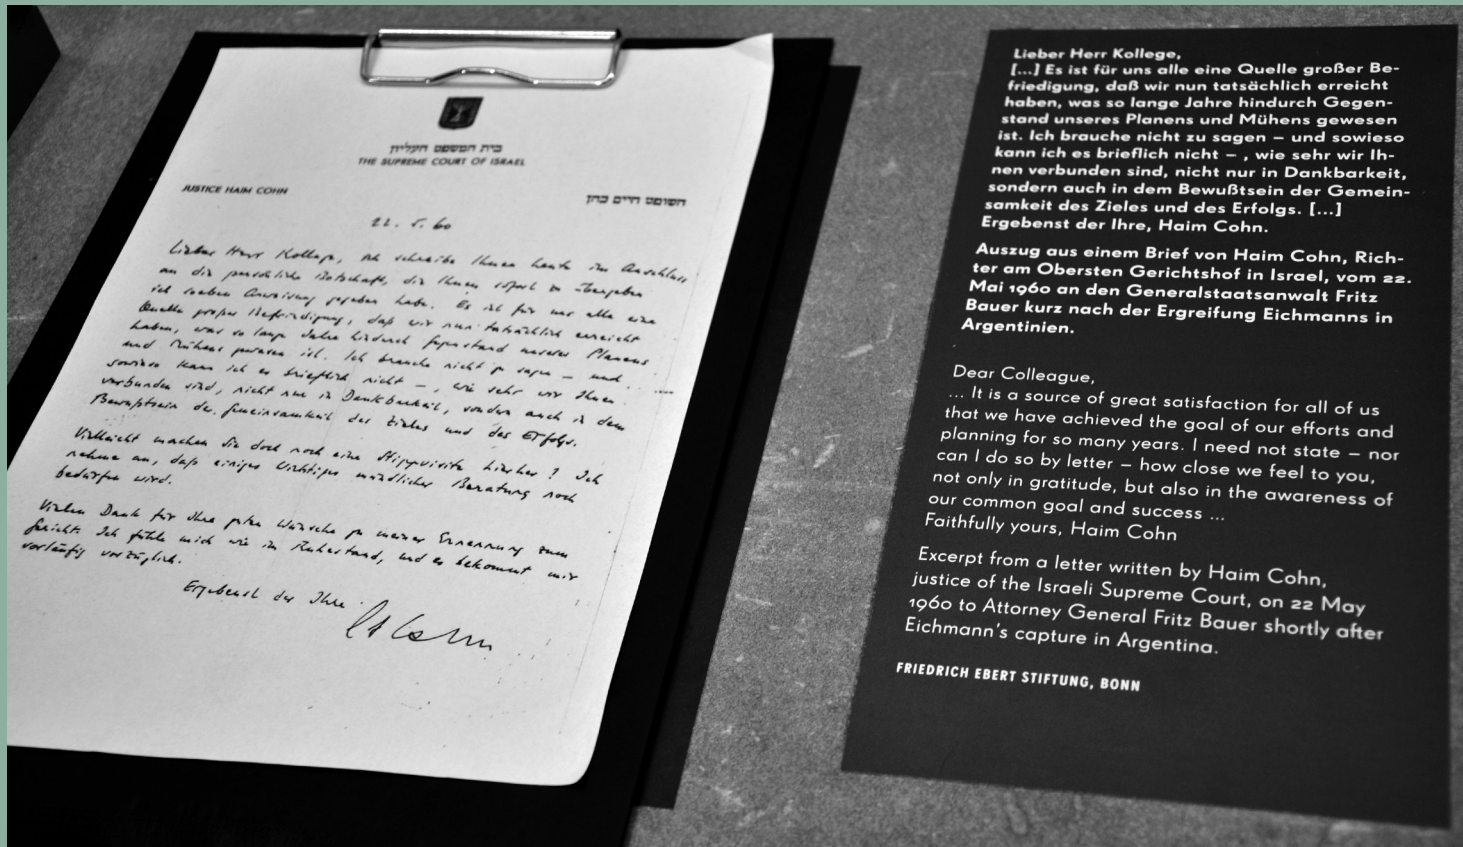 בית המשפט העליון
THE SUPREME COURT OF ISRAEL
JUSTICE HAIM COHN
השופט חיים כהן
22. 5. 60
Lieber Herr Kollege, ich schreibe Ihnen heute im Anschluss
an die persönliche Botschaft, die Ihnen sofort zu übergeben
ich soeben Anweisung gegeben habe. Es ist für uns alle eine
Quelle großer Befriedigung, daß wir nun tatsächlich erreicht
haben, was so lange Jahre hindurch Gegenstand unseres Planens
und Mühens gewesen ist. Ich brauche nicht zu sagen – und
sowieso kann ich es brieflich nicht –, wie sehr wir Ihnen
verbunden sind, nicht nur in Dankbarkeit, sondern auch in dem
Bewußtsein der Gemeinsamkeit des Zieles und des Erfolgs.
Vielleicht machen Sie doch noch eine Stippvisite hierher? Ich
nehme an, daß einiges Wichtiges mündlicher Beratung noch
bedürfen wird.
Vielen Dank für Ihre guten Wünsche zu meiner Ernennung zum
Gericht. Ich fühle mich wie im Ruhestand, und es bekommt mir
vorläufig vorzüglich.
Ergebenst der Ihre
Lieber Herr Kollege,
[...] Es ist für uns alle eine Quelle großer Be-
friedigung, daß wir nun tatsächlich erreicht
haben, was so lange Jahre hindurch Gegen-
stand unseres Planens und Mühens gewesen
ist. Ich brauche nicht zu sagen – und sowieso
kann ich es brieflich nicht – , wie sehr wir Ih-
nen verbunden sind, nicht nur in Dankbarkeit,
sondern auch in dem Bewußtsein der Gemein-
samkeit des Zieles und des Erfolgs. [...]
Ergebenst der Ihre, Haim Cohn.
Auszug aus einem Brief von Haim Cohn, Rich-
ter am Obersten Gerichtshof in Israel, vom 22.
Mai 1960 an den Generalstaatsanwalt Fritz
Bauer kurz nach der Ergreifung Eichmanns in
Argentinien.
Dear Colleague,
... It is a source of great satisfaction for all of us
that we have achieved the goal of our efforts and
planning for so many years. I need not state – nor
can I do so by letter – how close we feel to you,
not only in gratitude, but also in the awareness of
our common goal and success ...
Faithfully yours, Haim Cohn
Excerpt from a letter written by Haim Cohn,
justice of the Israeli Supreme Court, on 22 May
1960 to Attorney General Fritz Bauer shortly after
Eichmann's capture in Argentina.
FRIEDRICH EBERT STIFTUNG, BONN